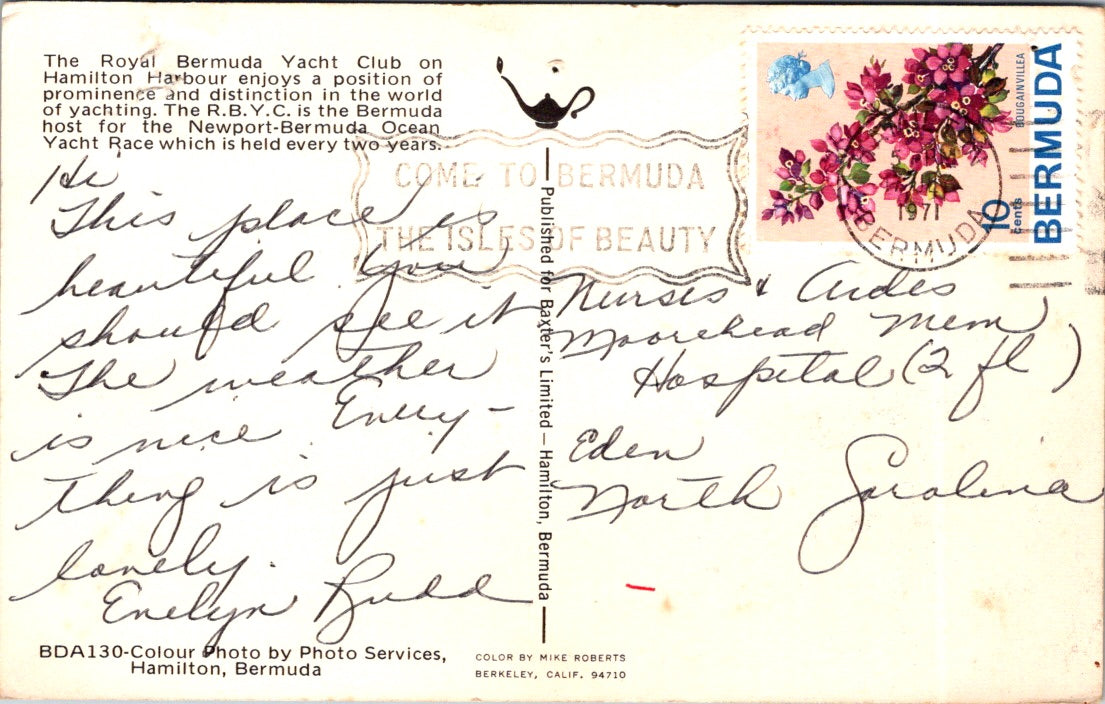 The Royal Bermuda Yacht Club on
Hamilton Harbour enjoys a position of
prominence and distinction in the world
of yachting. The R.B.Y.C. is the Bermuda
host for the Newport-Bermuda Ocean
Yacht Race which is held every two years.
Hi
This place is
beautiful you
should see it
The weather
is nice. Every-
thing is just
lovely.
Evelyn Rudd
BDA130-Colour Photo by Photo Services,
Hamilton, Bermuda
COME TO BERMUDA
THE ISLES OF BEAUTY
Published for Baxter's Limited — Hamilton, Bermuda
BOUGAINVILLEA
BERMUDA
10
cents
1971
BERMUDA
Nurses & Aides
Moorehead Mem
Hospital (2 fl)
Eden
North Carolina
COLOR BY MIKE ROBERTS
BERKELEY, CALIF. 94710